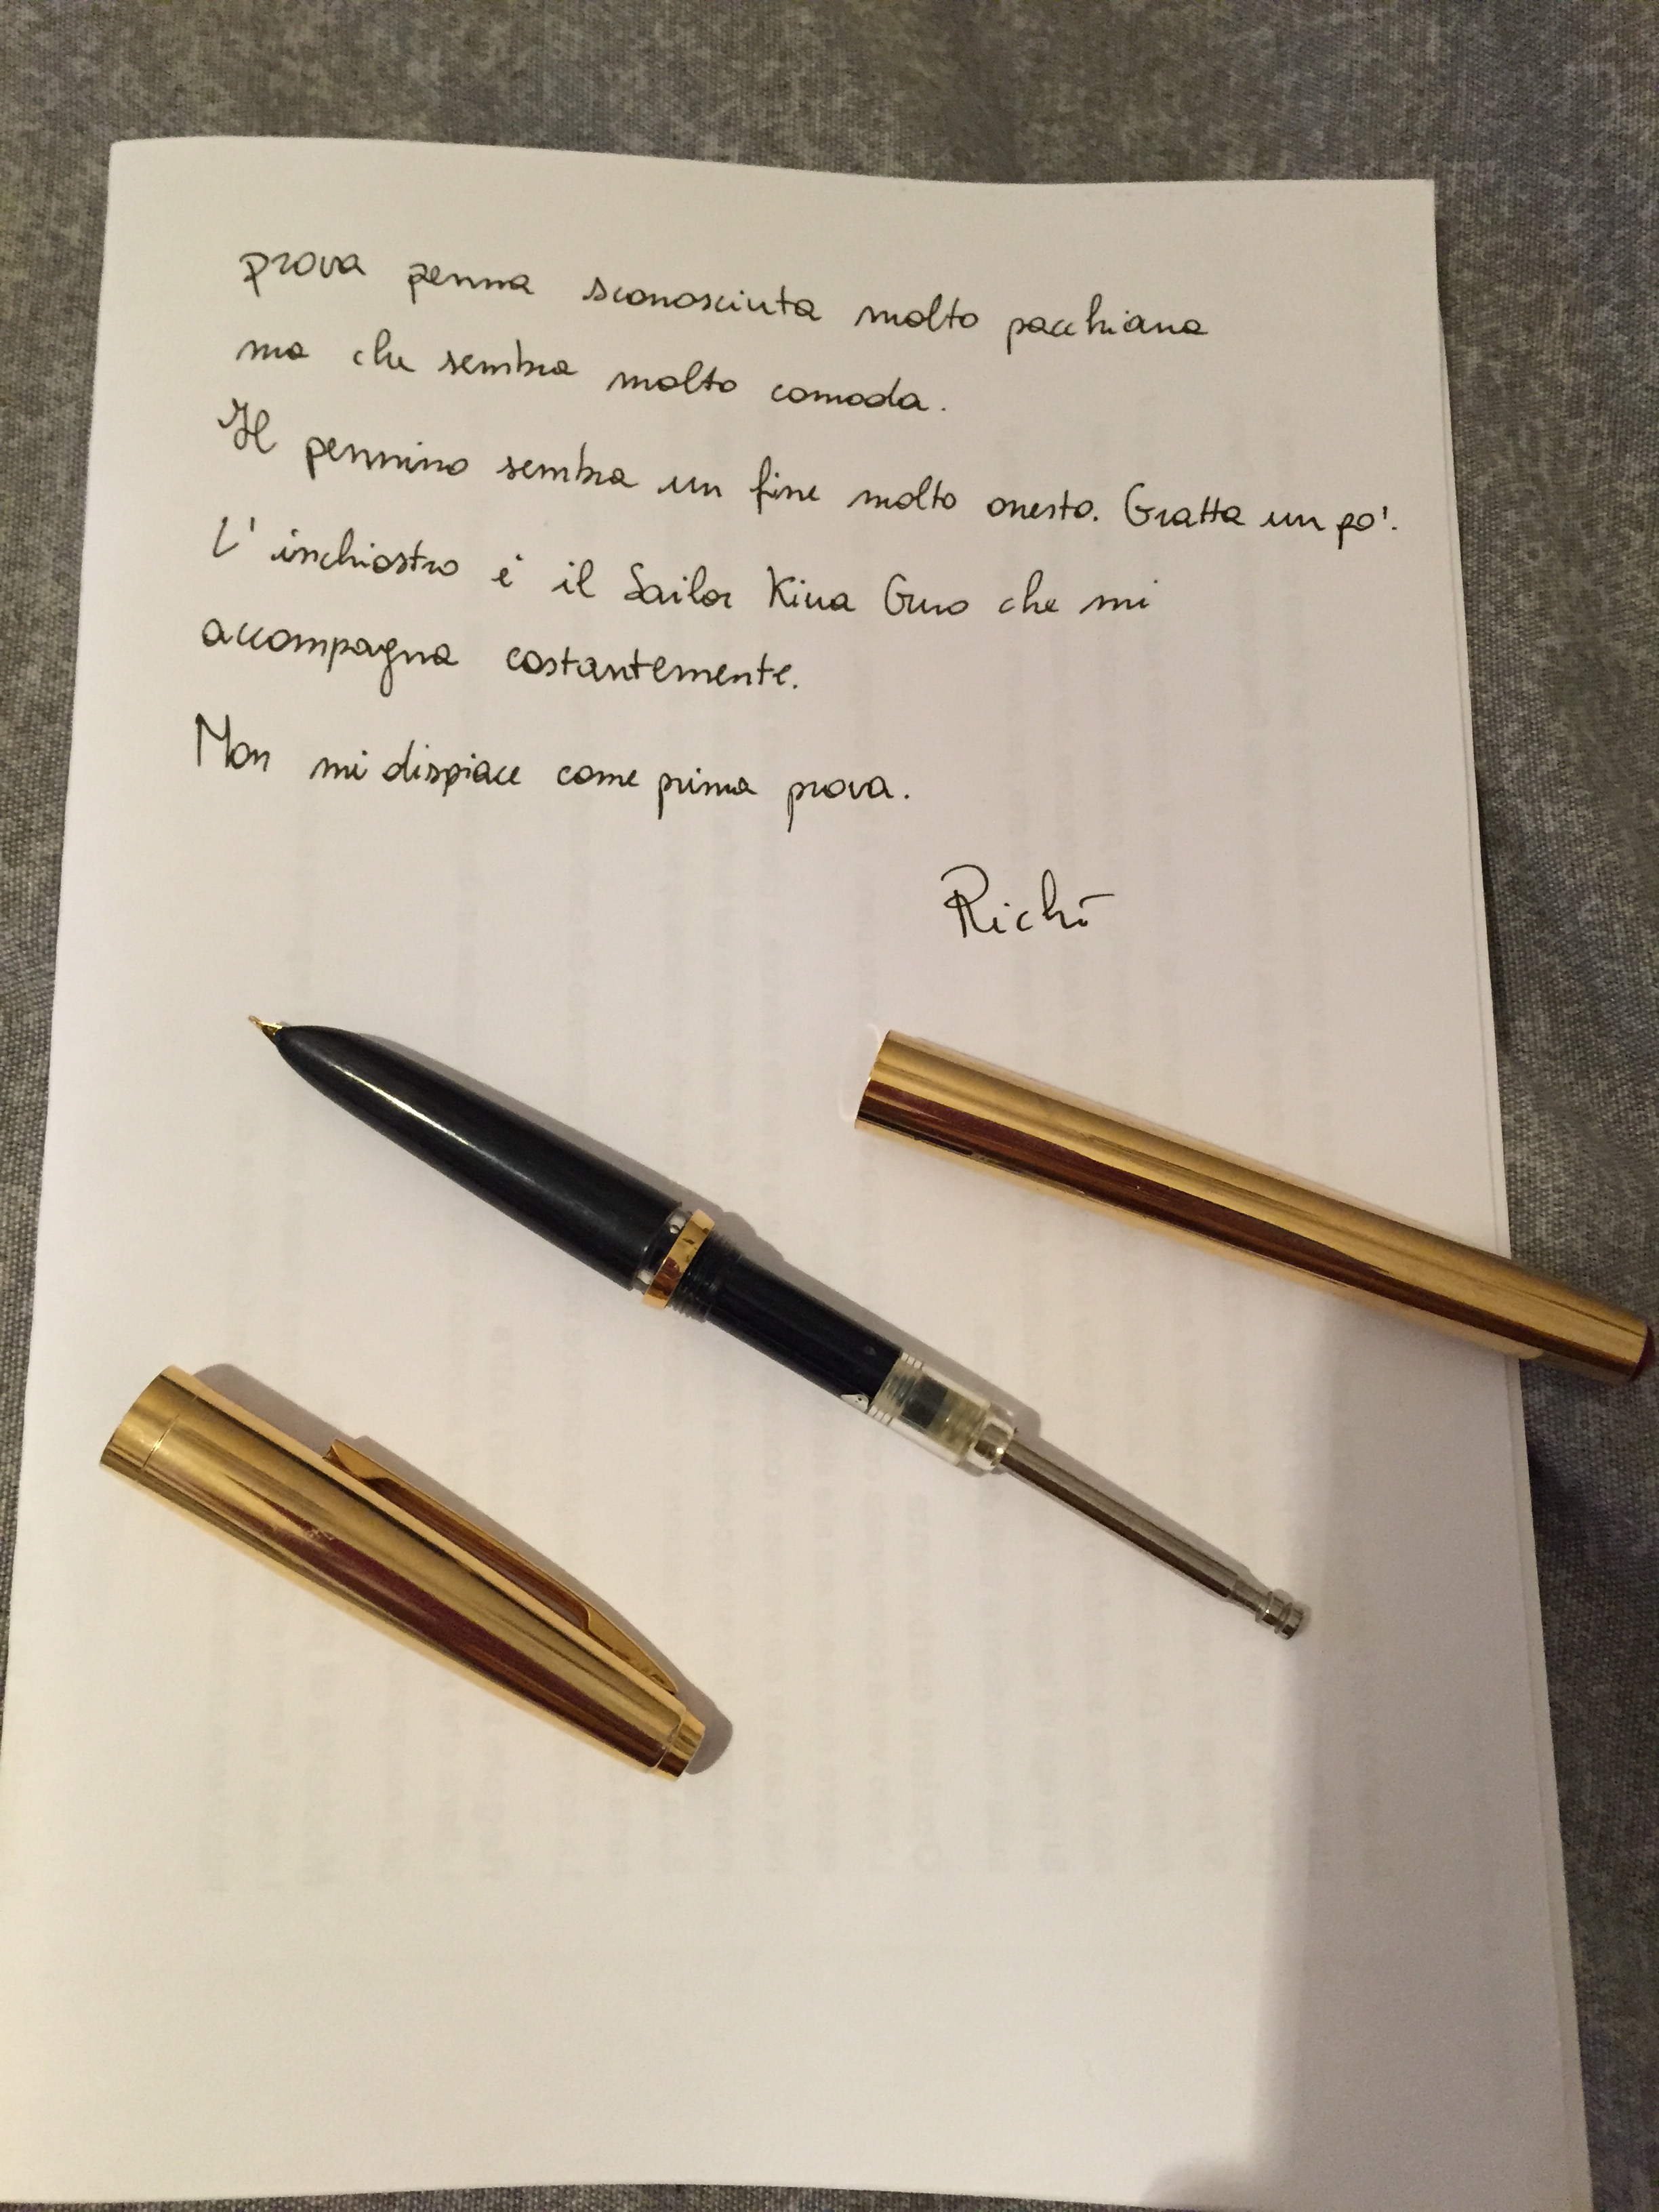 prova penna sconosciuta molto pacchiana
ma che sembra molto comoda.
Il pennino sembra un fine molto onesto. Gratta un po'.
L'inchiostro è il Sailor Kiwa Guro che mi
accompagna costantemente.
Non mi dispiace come prima prova.